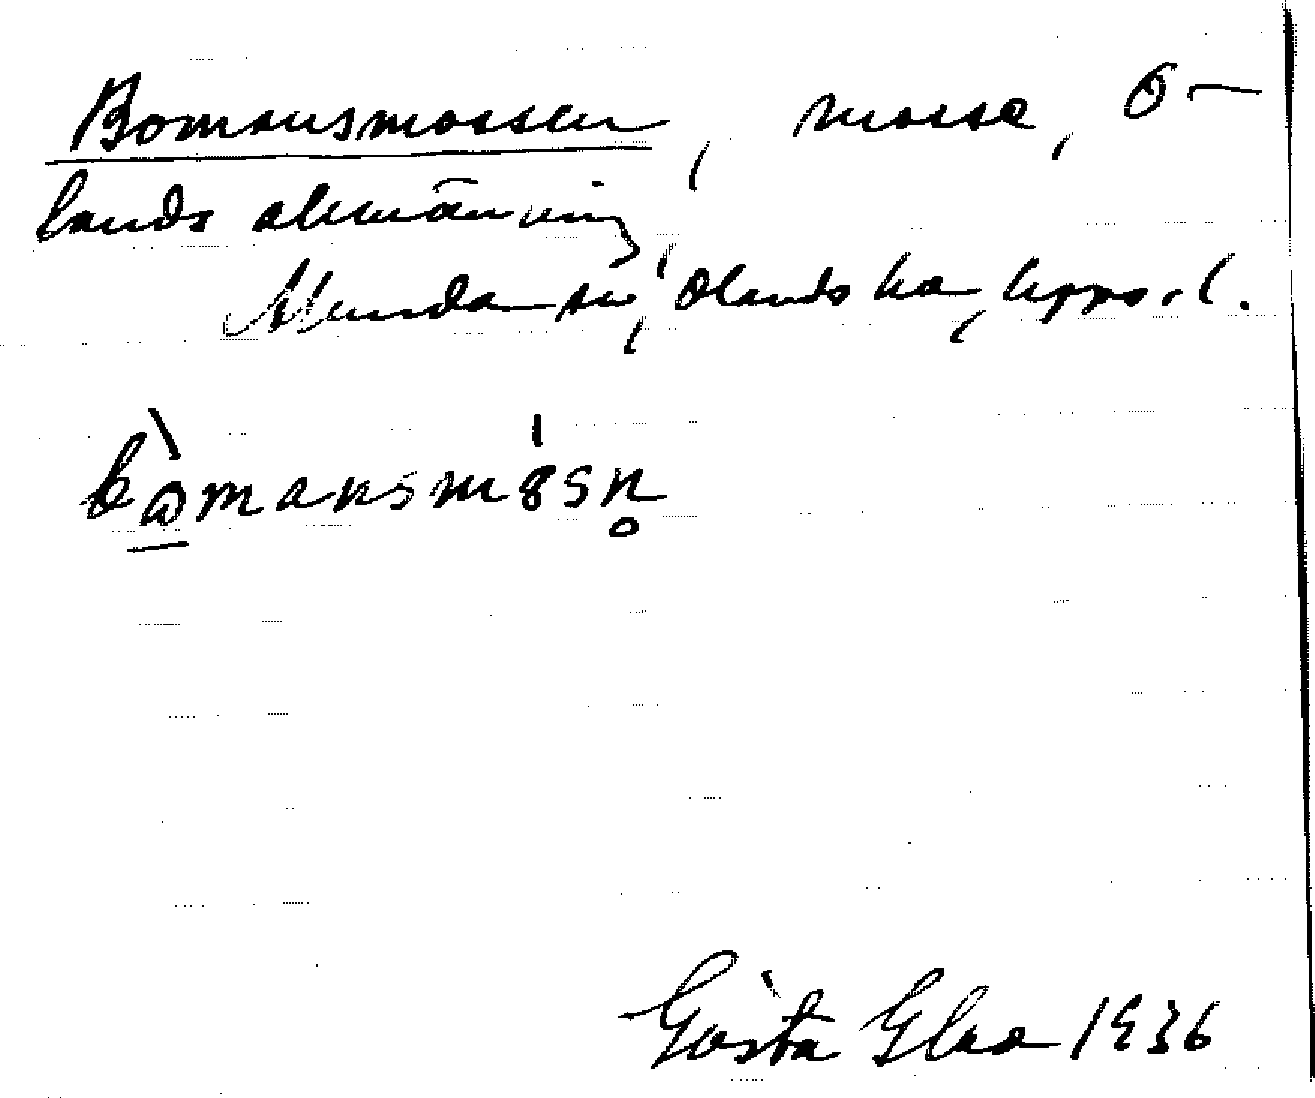 Bomansmossen, mosse, Ö-
lands allmänning,
Alunda sn, Olands hd, Upps. l.
bòmansmósn̥
Gösta Elao 1936